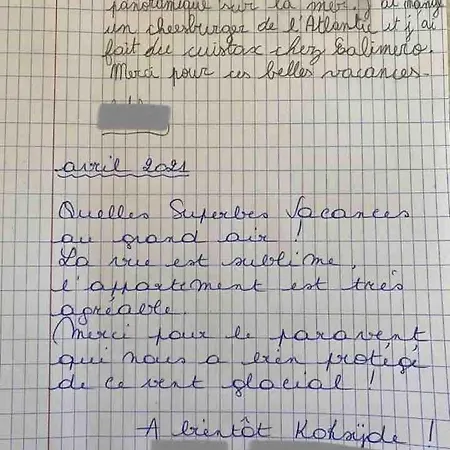 panoramique sur la mer. J'ai mangé
un cheesburger de l'Atlantic et j'ai
fait du cuistax chez Calimero.
Merci pour ces belles vacances.
avril 2021
Quelles Superbes Vacances
au grand air !
La vue est sublime,
l'appartement est très
agréable.
Merci pour le paravent
qui nous a bien protégé
de ce vent glacial !
A bientôt Koksijde !